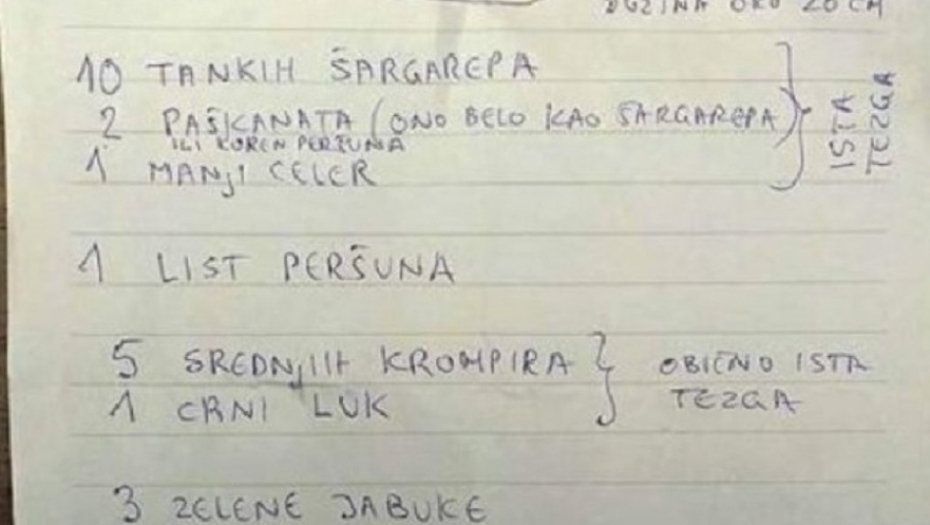 DUŽINA OKO 20 CM
10 TANKIH ŠARGAREPA
2 PAŠKANATA (ONO BELO KAO ŠARGAREPA)
ILI KOREN PERŠUNA
1 MANJI CELER
ISTA
TEZGA
1 LIST PERŠUNA
5 SREDNJIH KROMPIRA
1 CRNI LUK
OBIČNO ISTA
TEZGA
3 ZELENE JABUKE